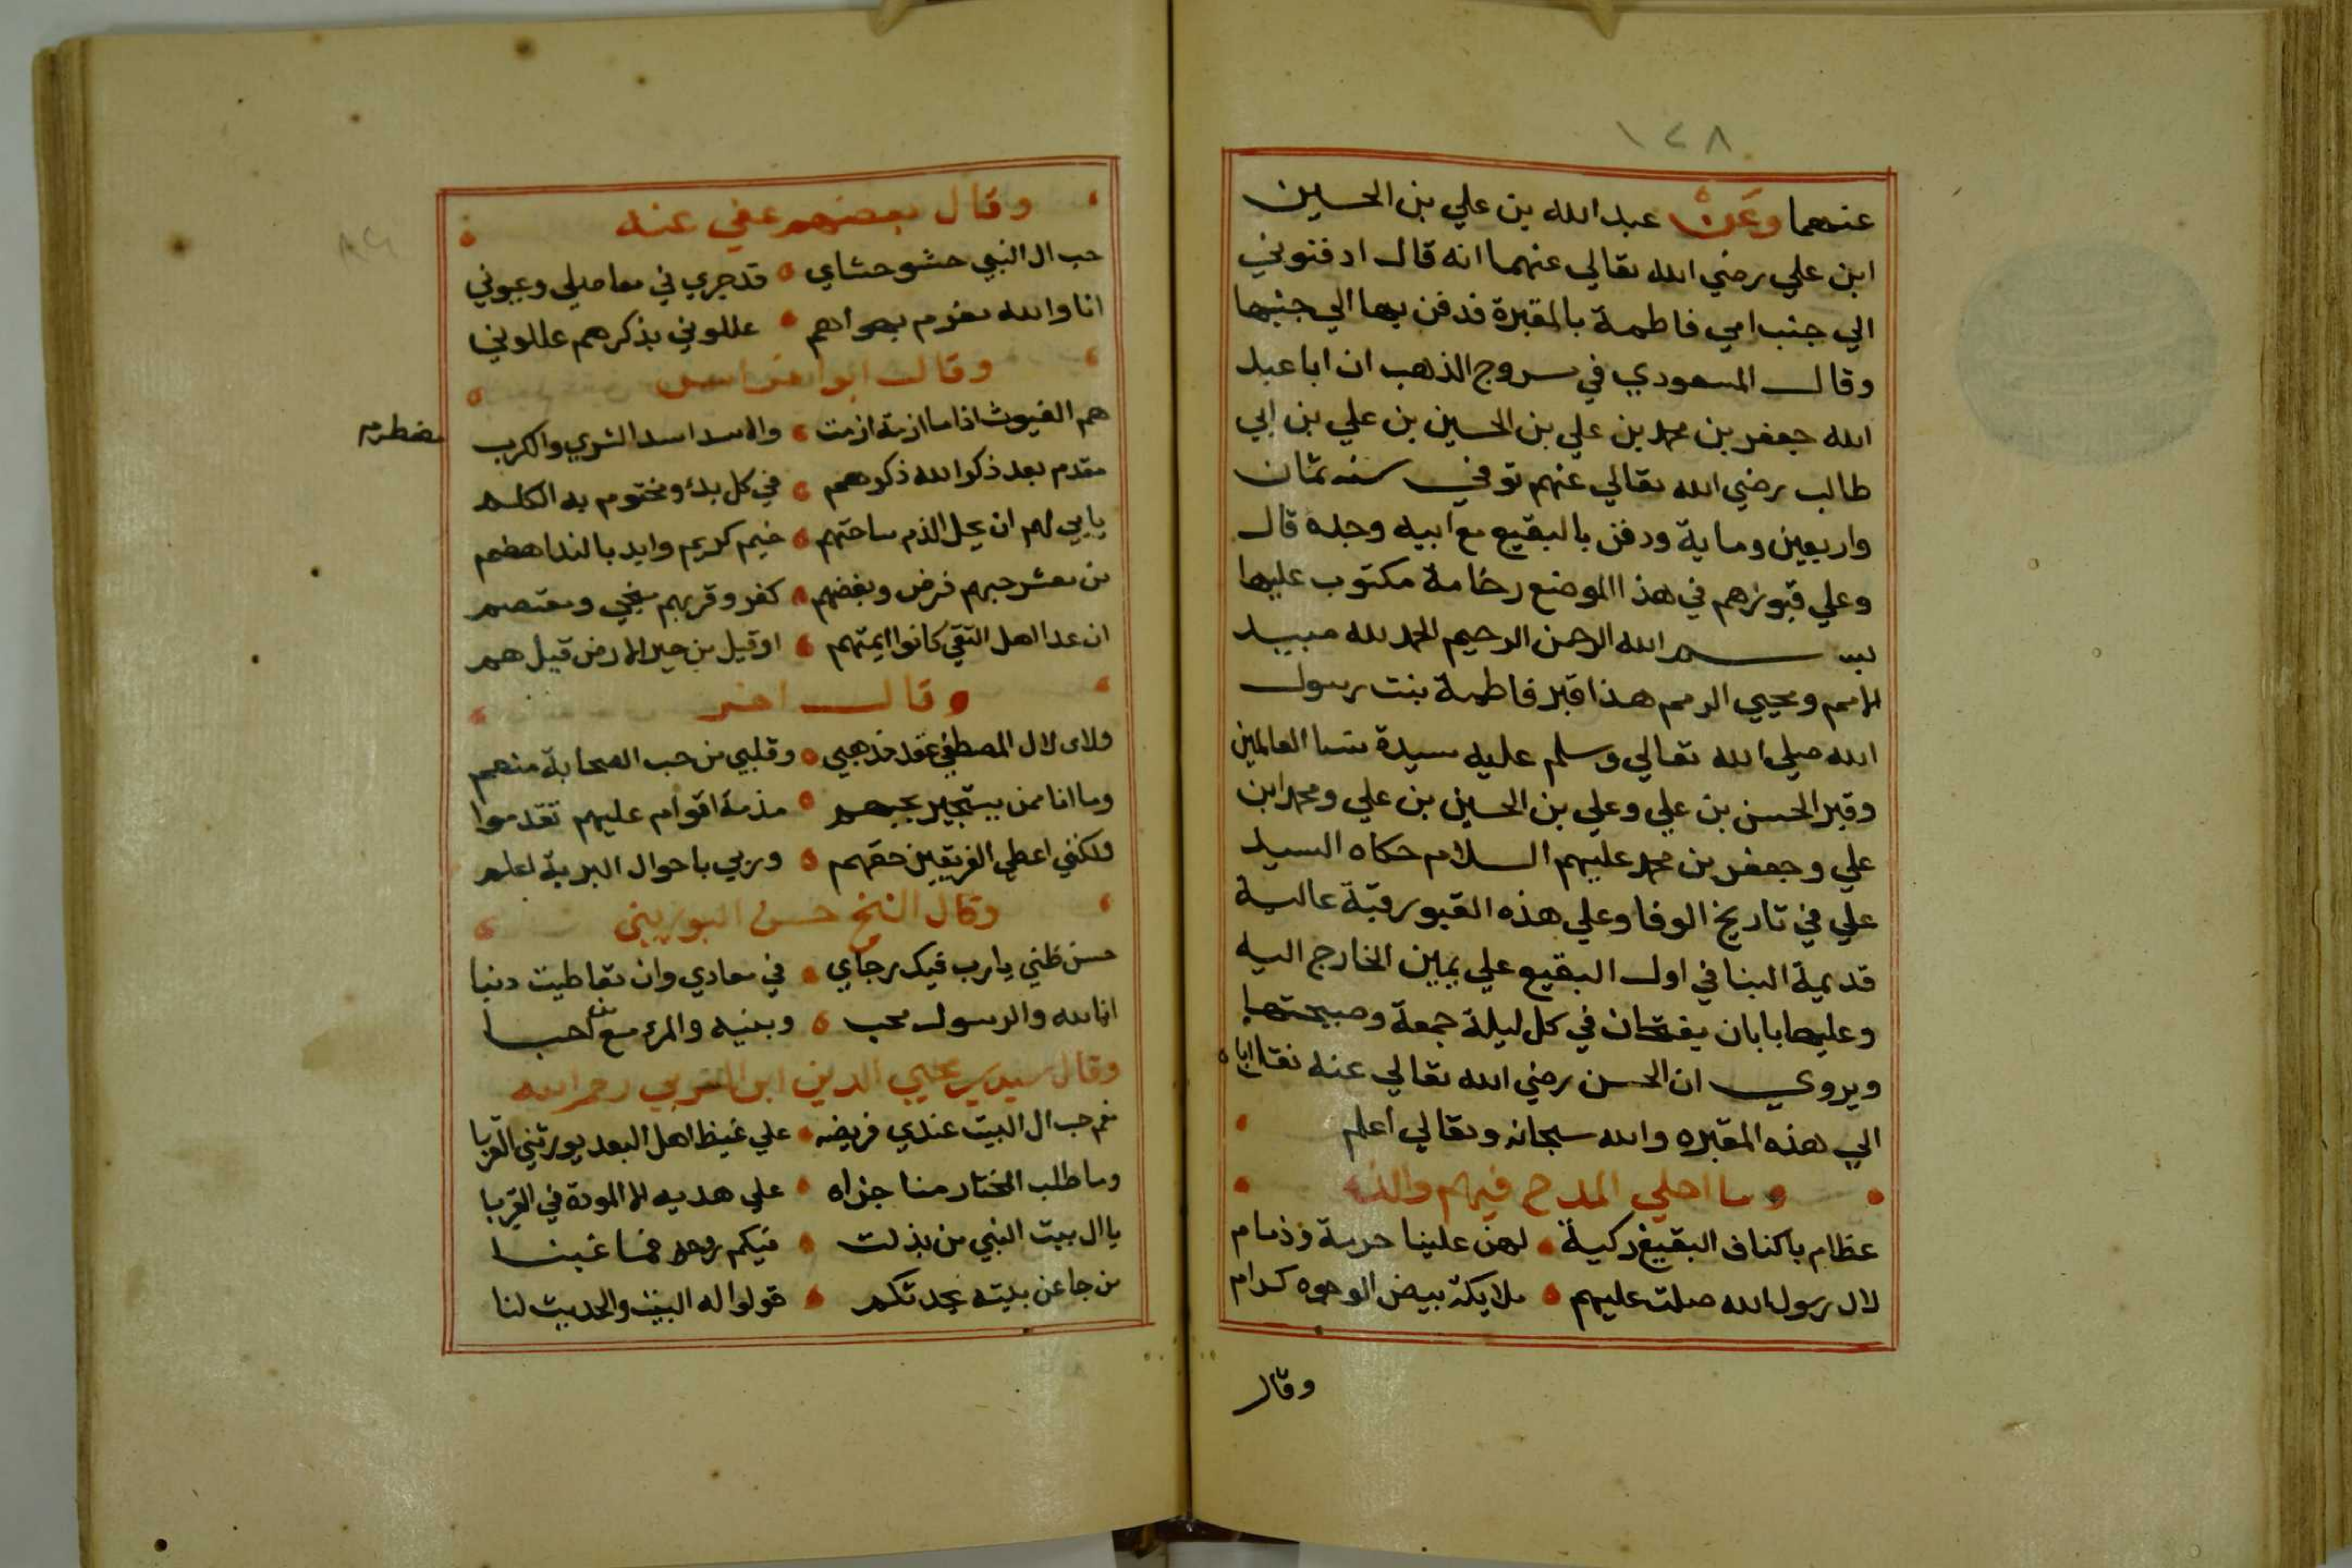 ١٢٨
عنهما وعن عبد الله بن علي بن الحسين
ابن علي رضي الله تعالي عنهما انه قال ادفنوني
الي جنب امي فاطمة بالمقبرة فدفن بها الي جنبها
وقال المسعودي في مروج الذهب ان ابا عبد
الله جعفر بن محمد بن علي بن الحسين بن علي بن ابي
طالب رضي الله تعالي عنهم توفي سنه ثمان
واربعين وماية ودفن بالبقيع مع ابيه وجده قال
وعلي قبورهم في هذا الموضع رخامة مكتوب عليها
بسم الله الرحمن الرحيم الحمد لله مبيد
الامم ومحيي الرمم هذا قبر فاطمة بنت رسول
الله صلي الله تعالي وسلم عليه سيدة نسا العالمين
وقبر الحسن بن علي وعلي بن الحسين بن علي ومحمد ابن
علي وجعفر بن محمد عليهم السلام حكاه السيد
علي في تاريخ الوفا وعلي هذه القبور قبة عالية
قديمية البنا في اول البقيع علي يمين الخارج اليه
وعليها بابان يفتحان في كل ليلة جمعة وصبيحتها
ويروي ان الحسن رضي الله تعالي عنه نقل اباه
الي هذه المقبره والله سبحانه وتعالي اعلم
وما احلي المدح فيهم والذه
عظام باكناف البقيع زكية لهن علينا حرمة وذمام
لال رسول الله صلت عليهم ملايكة بيض الوجوه كرام
وقال
وقال بعضهم عفي عنه
حب ال النبي حشو حشاي قد جري في مفاصلي وعيوني
انا والله مغرم بهواهم عللوني بذكرهم عللوني
وقال ابوا فراس
هم الغيوث اذا ما ازمة ازمت والاسد اسد الشري والكرب مضطرم
مقدم بعد ذكر الله ذكرهم في كل بدء ومختوم به الكلم
يابي لهم ان يحل الذم ساحتهم خيم كريم وايد بالندا هضم
من معشر حبهم فرض وبغضهم كفر وقربهم منجي ومعتصم
ان عد اهل التقي كانوا ايمتهم او قيل من خير الارض قيل هم
وقال اخر
ولاي لال المصطفي عقد مذهبي وقلبي من حب الصحابة مفعم
وما انا ممن يستجيز بحبهم مذمة اقوام عليهم تقدموا
ولكنني اعطي الفريقين حقهم وربي باحوال البرية اعلم
وقال الشيخ حسن البوريني
حسن ظني يارب فيك رجاي في معادي وان تعاطيت دنيا
انا لله والرسول محب وبنيه والمرء مع من احبا
وقال سيدي محيي الدين ابن العربي رحمه الله
نعم حب ال البيت عندي فريضه علي غيظ اهل البعد يورثني القربا
وما طلب المختار منا جزاه علي هديه الا المودة في القربا
يا ال بيت النبي من بذلت فيكم روحه فما غبنا
من جا عن بيته يحدثكم قولوا له البيت والحديث لنا